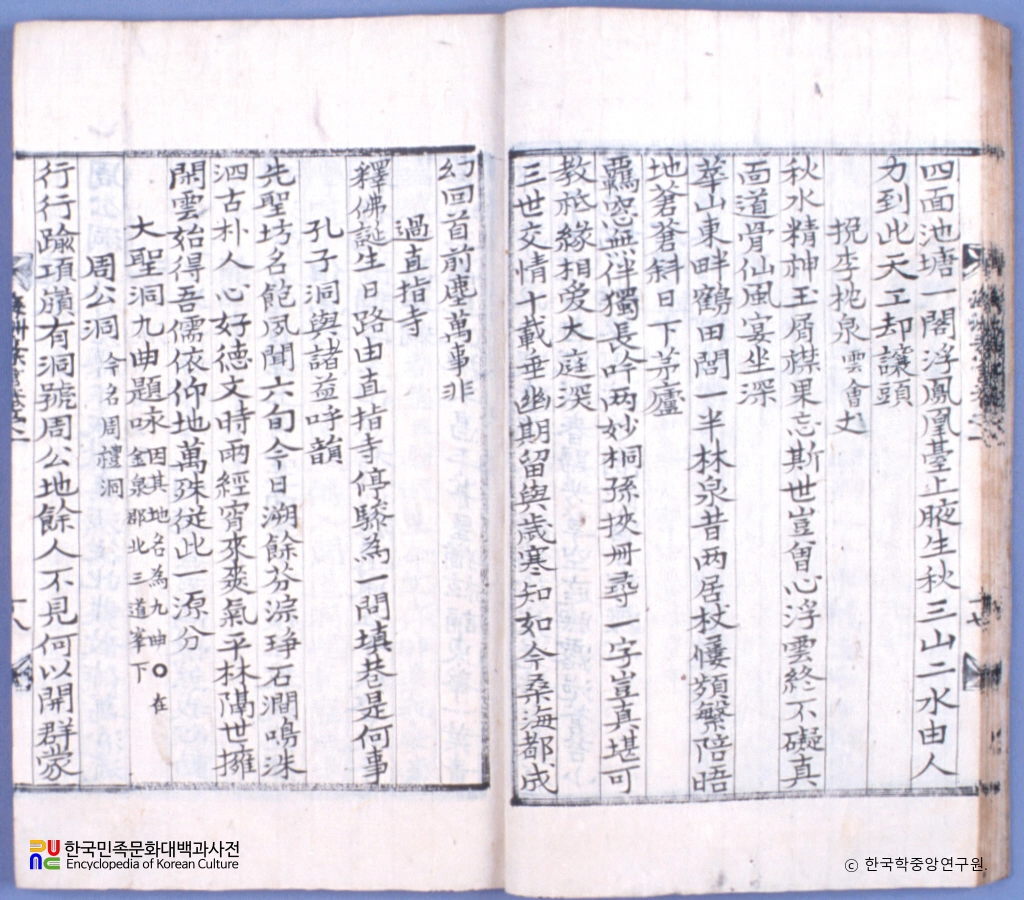 四面池塘一閣浮鳳凰臺上腋生秋三山二水由人
力到此天工却讓頭
挽李枕泉 雲會丈
秋水精神玉屑襟果忘斯世豈曾心浮雲終不礙真
面道骨仙風宴坐深
華山東畔鶴田閭一半林泉昔兩居杖屨頻繁陪晤
地蒼蒼斜日下茅廬
窓盃伴獨長吟兩妙桐孫挾冊尋一字豈真堪可
教秪緣相愛大庭深
三世交情十載垂幽期留與歲寒知如今桑海都成
幻回首前塵萬事非
過直指寺
釋佛誕生日路由直指寺停驂為一問填巷是何事
孔子洞與諸益呼韻
先聖坊名飽夙聞六旬今日溯餘芬淙琤石澗鳴洙
泗古朴人心好德文時雨經宵來爽氣平林隔世擁
閑雲始得吾儒依仰地萬殊從此一源分
大聖洞九曲題咏 因其地名為九曲○在
金泉郡北三道峯下
周公洞 今名周禮洞
行行踰項嶺有洞號周公地餘人不見何以開群蒙
十七
十八
한국민족문화대백과사전
Encyclopedia of Korean Culture
ⓒ 한국학중앙연구원.